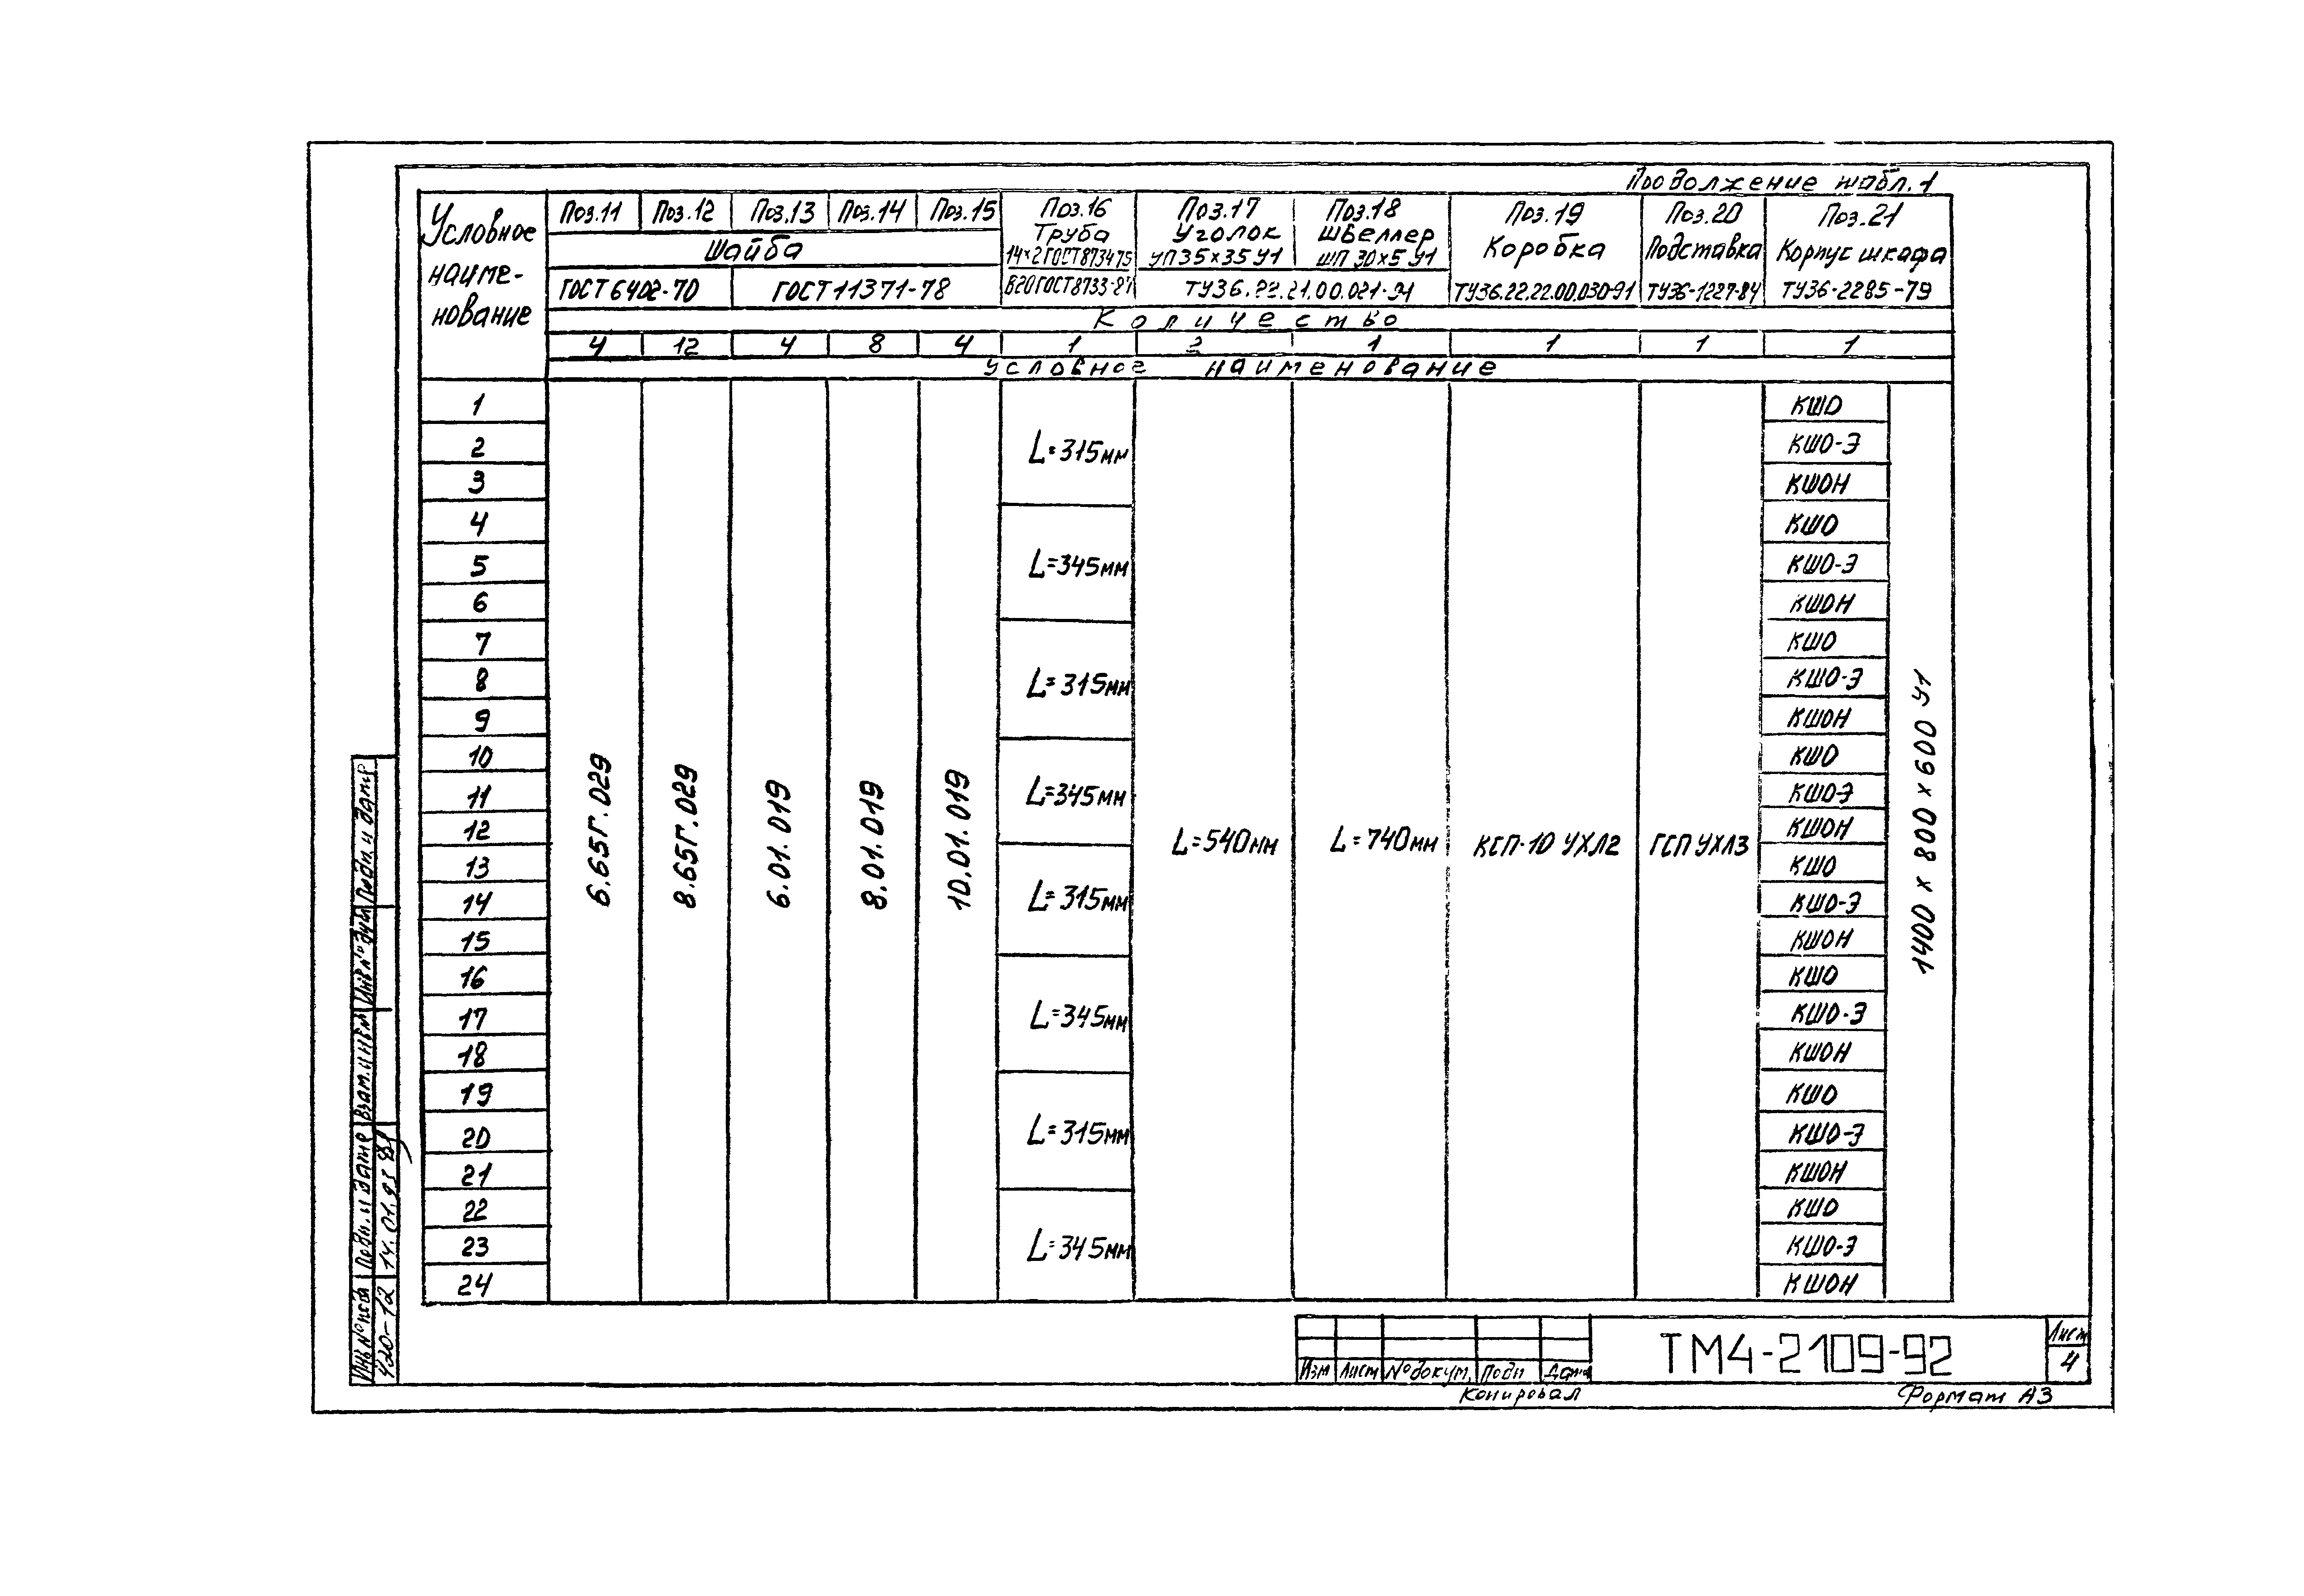 Продолжение табл. 1
Условное наиме-нование
Поз.11 Поз.12 Поз.13 Поз.14 Поз.15 Поз.16 Поз.17 Поз.18 Поз.19 Поз.20 Поз.21
Шайба Труба Уголок Швеллер Коробка Подставка Корпус шкафа
14×2 ГОСТ 8734-75 УП 35×35 У1 ШП 30×5 У1
ГОСТ 6402-70 ГОСТ 11371-78 В20 ГОСТ 8733-87 ТУ36.22.21.00.021-91 ТУ36.22.22.00.030-91 ТУ36-1227-84 ТУ36-2285-79
Количество
4 12 4 8 4 1 2 1 1 1 1
Условное наименование
1 КШО
2 L=315мм КШО-Э
3 КШОН
4 КШО
5 L=345мм КШО-Э
6 КШОН
7 КШО
8 L=315мм КШО-Э
9 КШОН
10 КШО
11 L=345мм КШО-Э
12 КШОН
6.65Г.029 8.65Г.029 6.01.019 8.01.019 10.01.019 L=540мм L=740мм КСП-10 УХЛ2 ГСП УХЛ3 1400 х 800 х 600 У1
13 КШО
14 L=315мм КШО-Э
15 КШОН
16 КШО
17 L=345мм КШО-Э
18 КШОН
19 КШО
20 L=315мм КШО-Э
21 КШОН
22 КШО
23 L=345мм КШО-Э
24 КШОН
Инв.№ подл Подп. и дата Взам.инв.№ Инв.№ дубл Подп. и дата
420-12 14.01.93
Изм Лист № докум. Подп Дата
ТМ4-2109-92
Лист
4
Копировал Формат А3